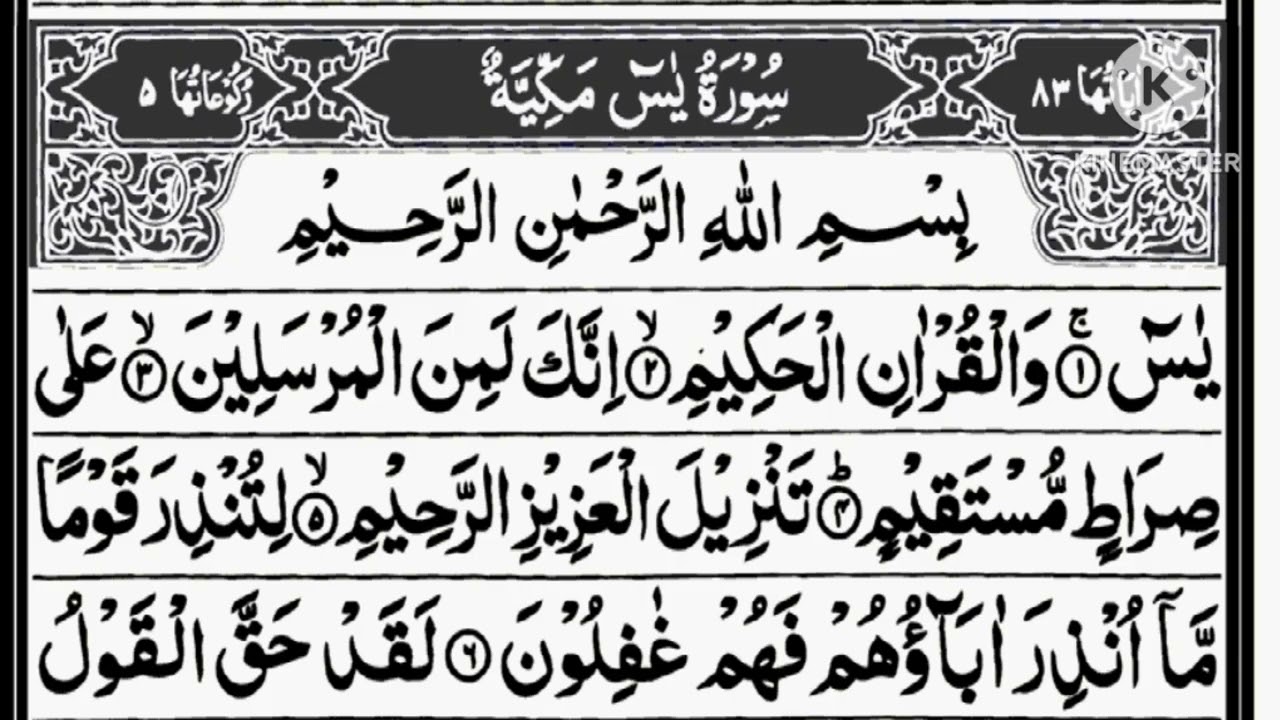 اٰيَاتُهَا ٨٣ سُوْرَةُ يٰسٓ مَكِّيَّةٌ رُكُوْعَاتُهَا ٥
K
KINEMASTER
بِسْمِ اللّٰهِ الرَّحْمٰنِ الرَّحِيْمِ
يٰسٓ ۚ﴿١﴾ وَالْقُرْاٰنِ الْحَكِيْمِ ۙ﴿٢﴾ اِنَّكَ لَمِنَ الْمُرْسَلِيْنَ ۙ﴿٣﴾ عَلٰى
صِرَاطٍ مُّسْتَقِيْمٍ ؕ﴿۴﴾ تَنْزِيْلَ الْعَزِيْزِ الرَّحِيْمِ ۙ﴿۵﴾ لِتُنْذِرَ قَوْمًا
مَّاۤ اُنْذِرَ اٰبَآؤُهُمْ فَهُمْ غٰفِلُوْنَ ﴿٦﴾ لَقَدْ حَقَّ الْقَوْلُ